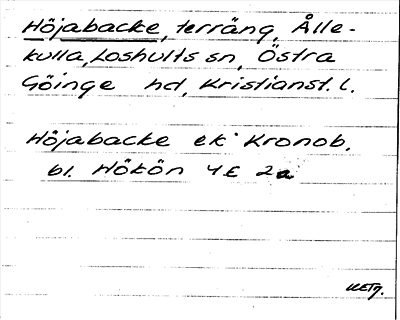 Höjabacke, terräng, Ålle-
kulla, Loshults sn, Östra
Göinge hd, Kristianst. l.
Höjabacke ek. Kronob.
bl. Hökön 4E 2a